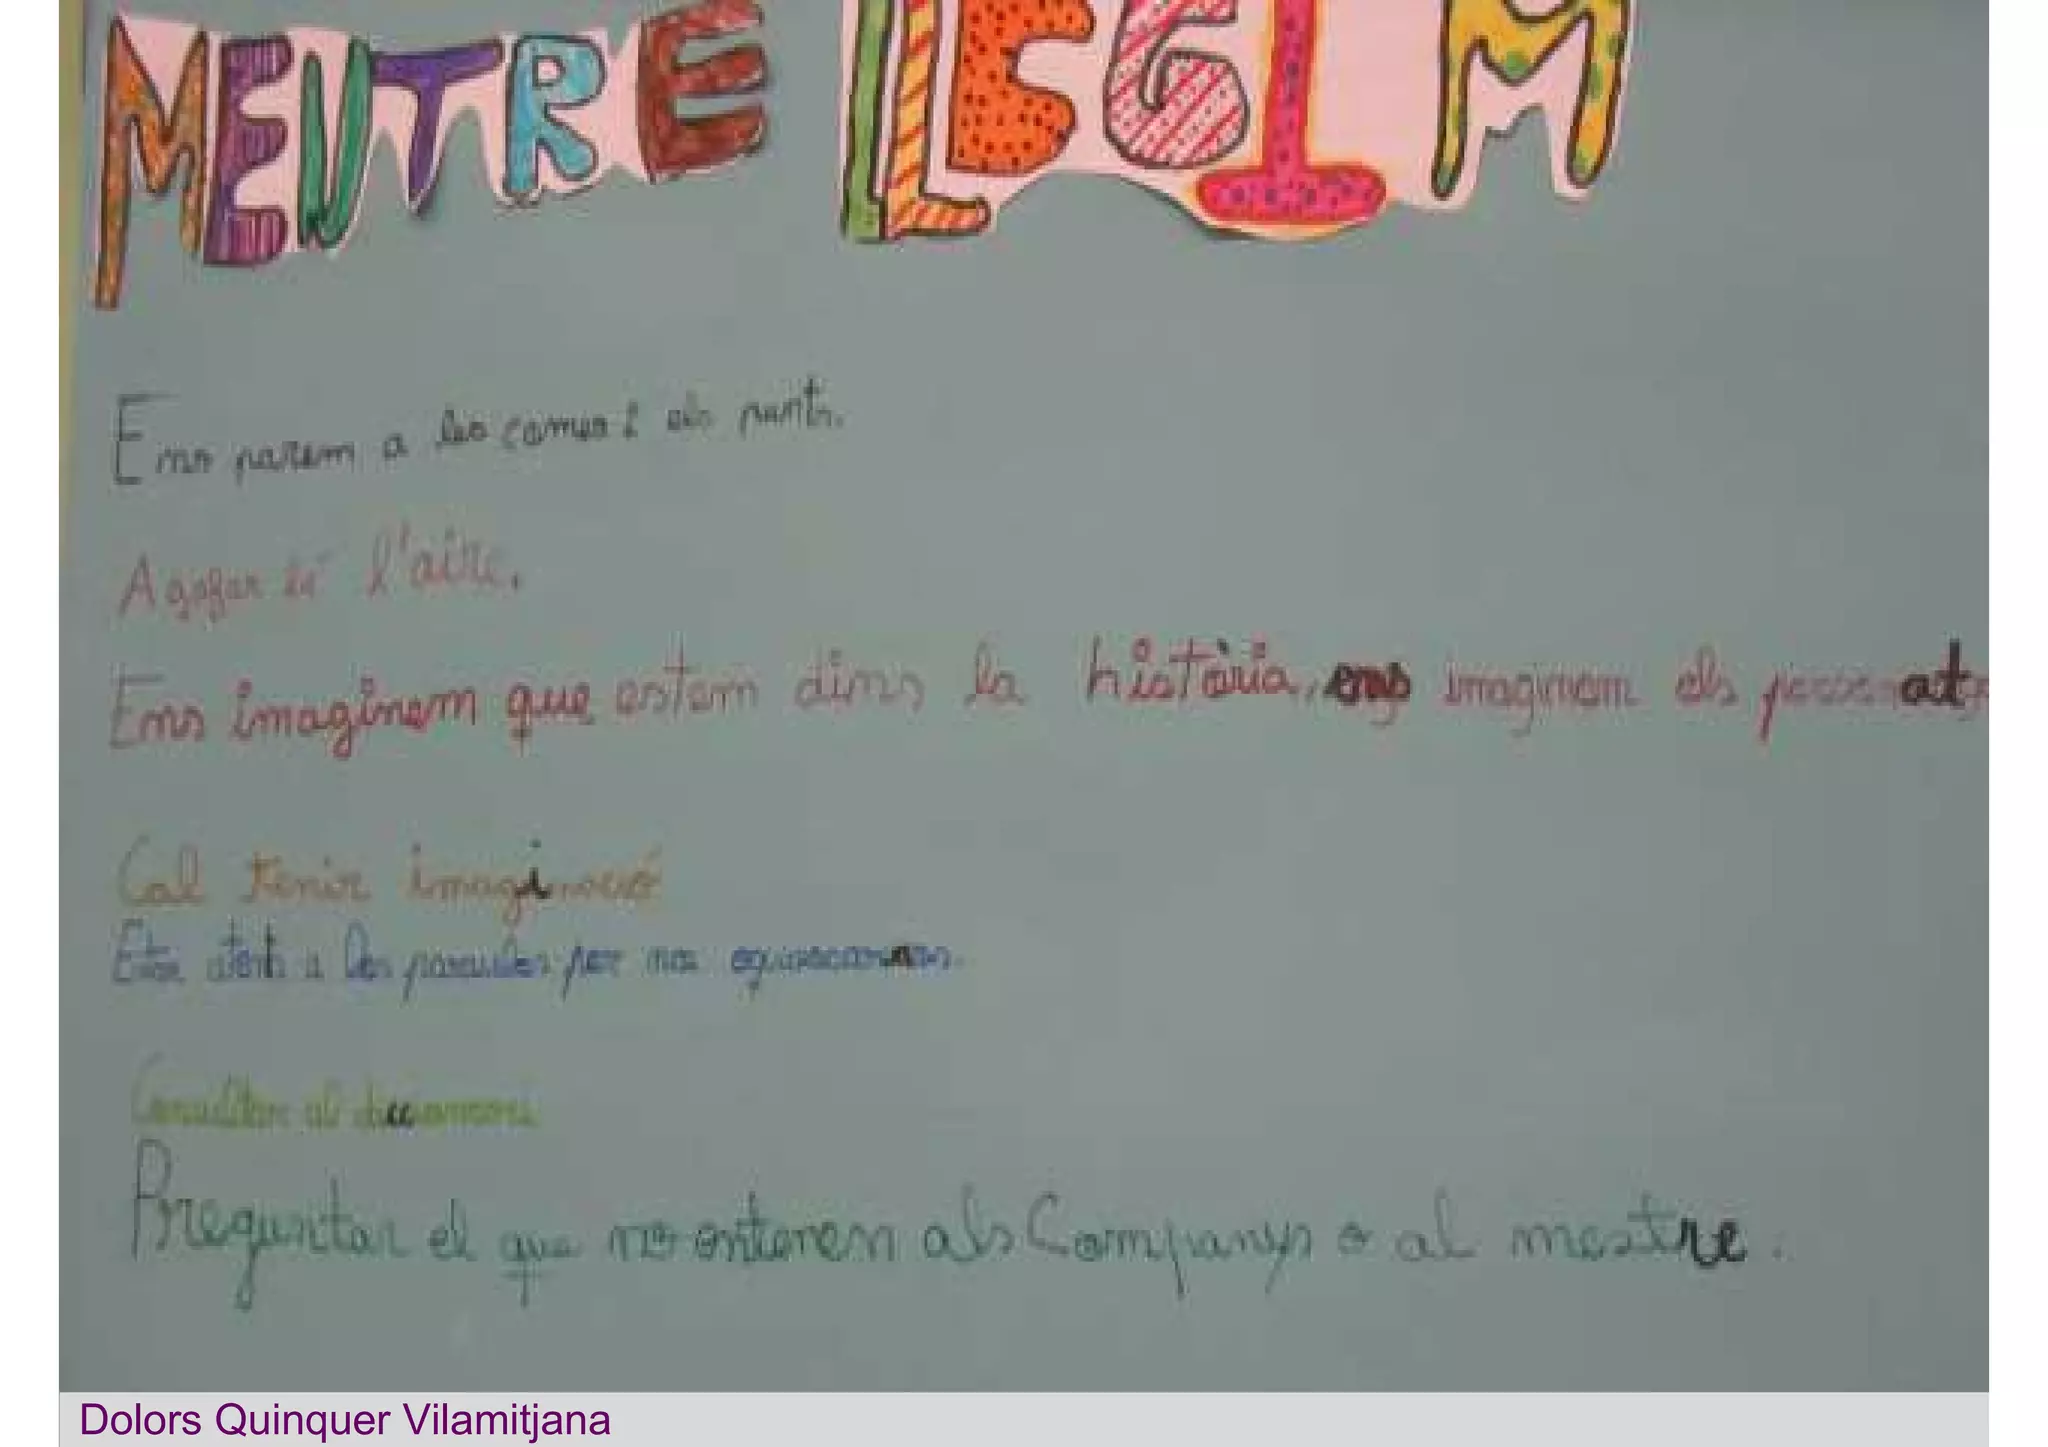 MENTRE LLEGIM
Ens parem a les comes i els punts.
Agafar bé l'aire.
Ens imaginem que estem dins la història, ens imaginem els personatge
Cal tenir imaginació
Estar atents a les paraules per no equivocarnos.
Consultar al diccionari
Preguntar el que no entenem als Companys o al mestre.
Dolors Quinquer Vilamitjana